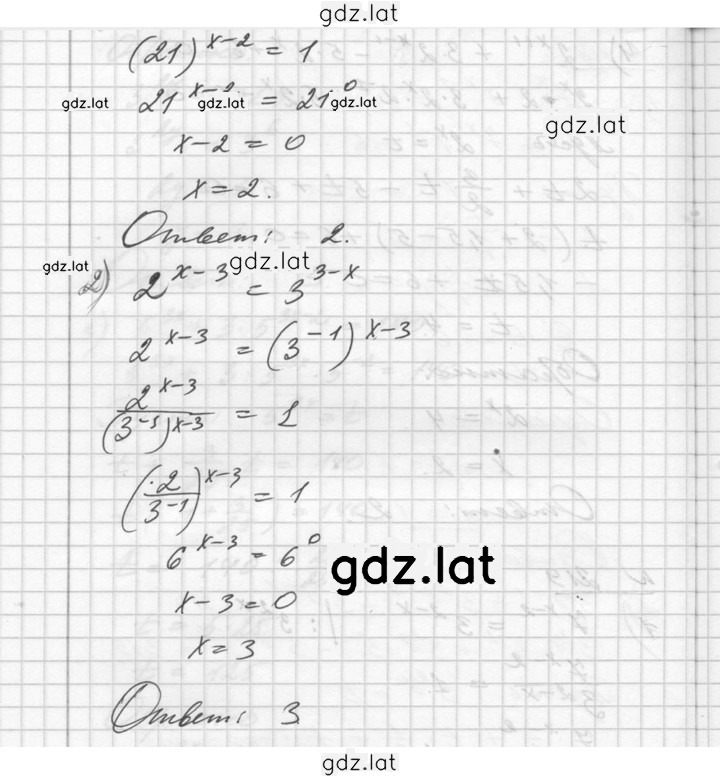 gdz.lat
(21)^{x-2} = 1
21^{x-2} = 21^0
gdz.lat gdz.lat gdz.lat
gdz.lat
x-2 = 0
x=2.
Ответ: 2.
gdz.lat gdz.lat
2) 2^{x-3} = 3^{3-x}
2^{x-3} = (3^{-1})^{x-3}
2^{x-3}/(3^{-1})^{x-3} = 1
(2/3^{-1})^{x-3} = 1
6^{x-3} = 6^0
gdz.lat
x-3=0
x=3
Ответ: 3
gdz.lat